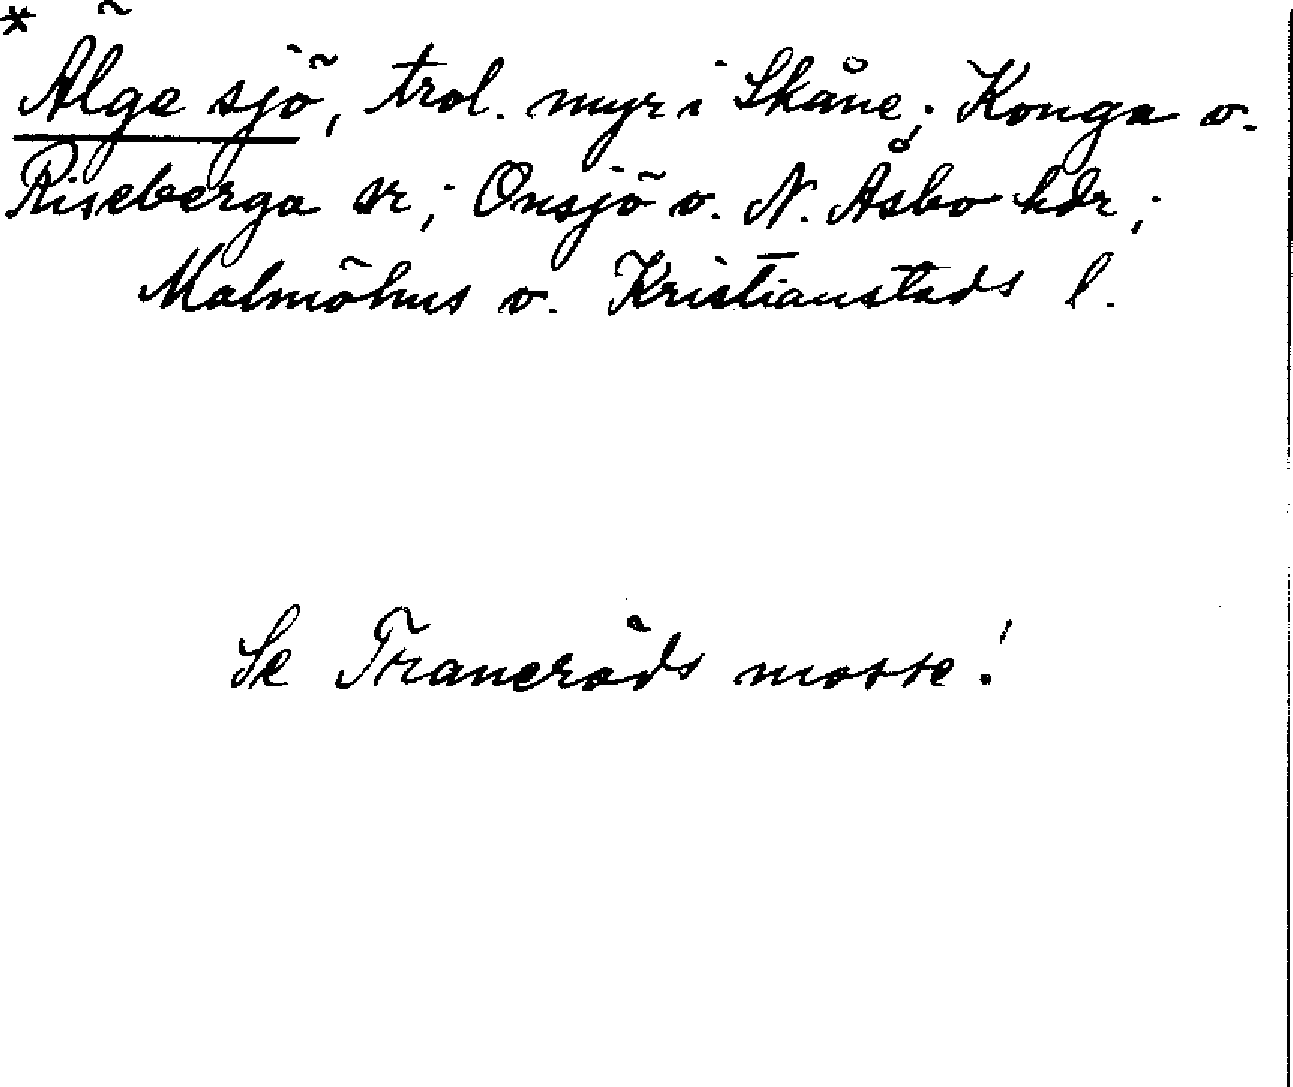 * Älge sjö, trol. myr i Skåne; Konga o.
Riseberga sr; Onsjö o. N. Åsbo hdr;
Malmöhus o. Kristianstads l.
Se Traneröds mosse!